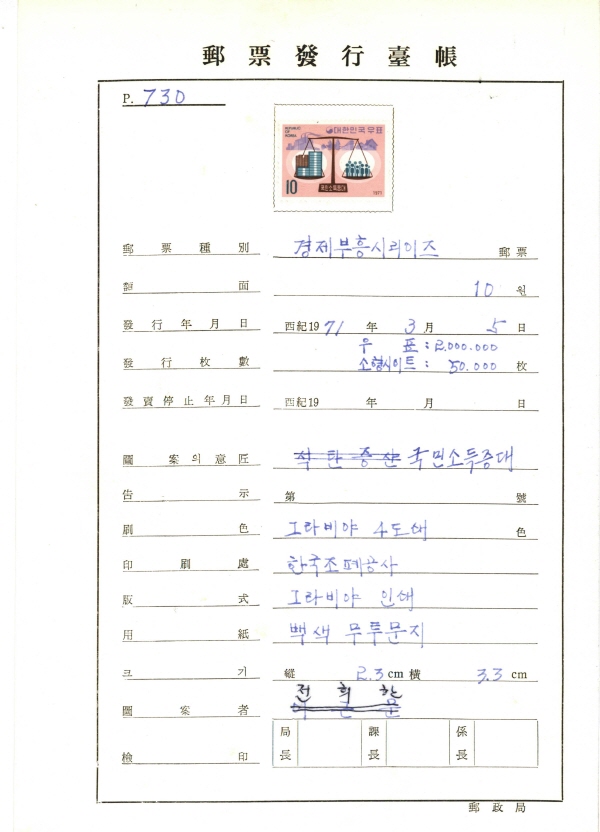 郵票發行臺帳
P. 730
REPUBLIC OF KOREA 대한민국우표
국민소득증대
10 1971
郵票種別 경제부흥시리이즈 郵票
額面 10 원
發行年月日 西紀19 71 年 3 月 5 日
우 표 : 2,000.000
發行枚數 소형시이트 : 50.000 枚
發賣停止年月日 西紀19 年 月 日
圖案의意匠 석탄증산 국민소득증대
告示 第 號
刷色 그라비야 4도쇄 色
印刷處 한국조폐공사
版式 그라비야 인쇄
用紙 백색 무투문지
크기 縱 2.3 cm 橫 3.3 cm
전 희 한
圖案者
檢印 局長 課長 係長
郵政局